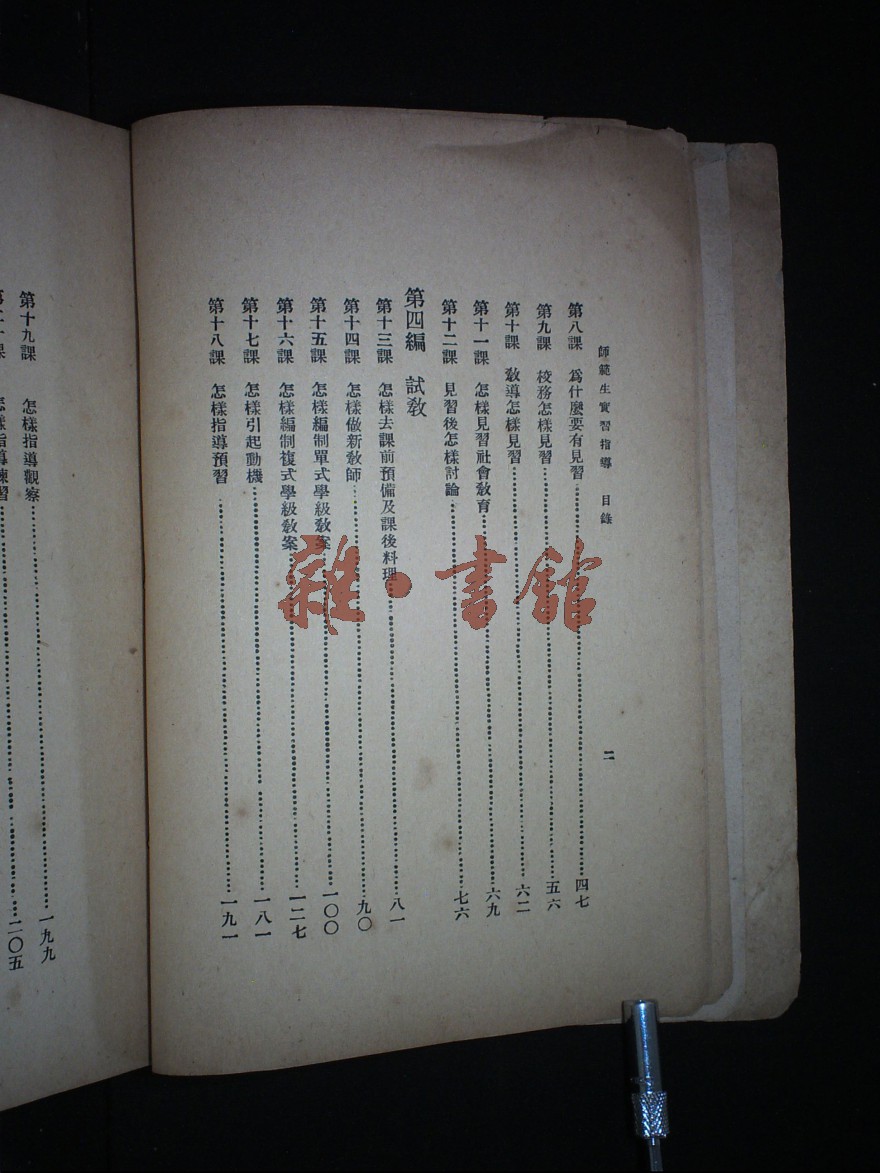 師範生實習指導　目錄
二
第八課　爲什麼要有見習……四七
第九課　校務怎樣見習……五六
第十課　敎導怎樣見習……六二
第十一課　怎樣見習社會敎育……六九
第十二課　見習後怎樣討論……七六
第四編　試敎
第十三課　怎樣去課前預備及課後料理……八一
第十四課　怎樣做新敎師……九〇
第十五課　怎樣編制單式學級敎案……一〇〇
第十六課　怎樣編制複式學級敎案……一二七
第十七課　怎樣引起動機……一八一
第十八課　怎樣指導預習……一九一
第十九課　怎樣指導觀察……一九九
怎樣指導練習……二〇五
雜·書館